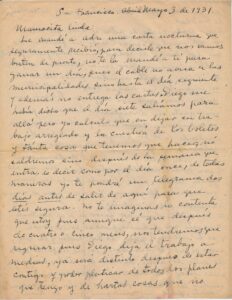 San Francisco Abril Mayo 3 de 1931.
Mamacita linda:
Le mandé a Adri una carta nocturna, que
seguramente recibió, para decirle que nos vamos
no te la mandé a ti para
ganar un día, pues el cable no a las
municipalidades sino hasta el día siguiente
y además no entrega las cartas. Diego me
había dicho que el día siete salíamos para
allá pero yo calculo que en dejar su tra-
bajo arreglado y la cuestión de los boletos
y tanta cosa que tenemos que hacer, no
saldremos sino después de la semana que
entra, es decir como por el día once, de todas
maneras yo te pondré un telegrama dos
días antes de salir de aquí para que
estés segura. No te imaginas lo contenta
que estoy pues aunque sé que después
de cuatro o cinco meses, nos tendremos que
regresar, pues Diego deja el trabajo a
medias, ya será distinto después de estar
contigo y poder platicar de todos los planes
que tengo y de hartas cosas que no